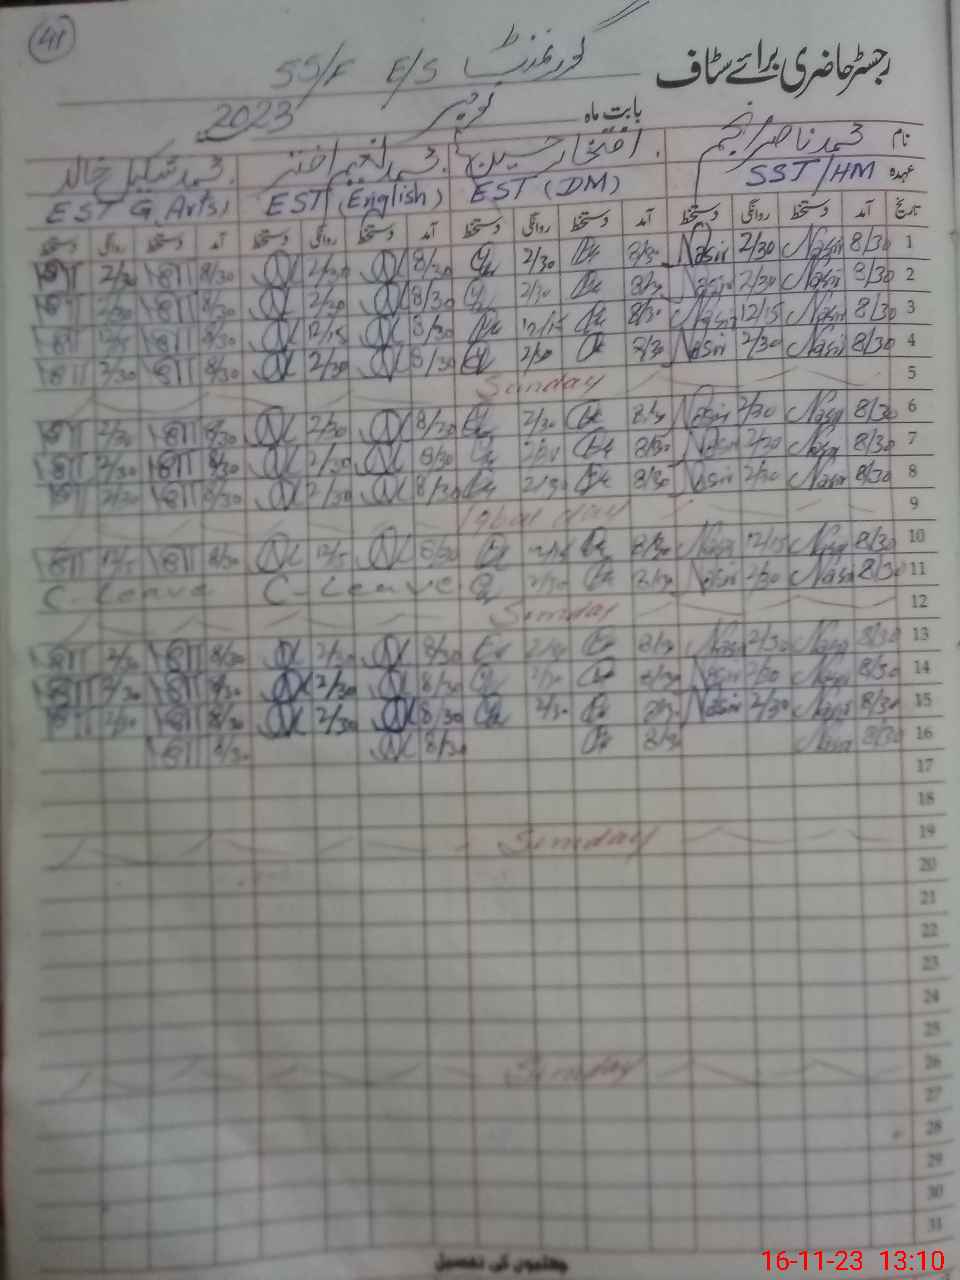 41
رجسٹر حاضری برائے سٹاف گورنمنٹ E/S SS/F
بابت ماہ نومبر 2023
نام محمد ناصر انجم افتخار حسین محمد نعیم اختر محمد شکیل خالد
عہدہ SST/HM EST (DM) EST (English) EST G. Arts
تاریخ آمد دستخط روانگی دستخط آمد دستخط روانگی دستخط آمد دستخط روانگی دستخط آمد دستخط روانگی دستخط
1 8/30 Nasir 2/30 Nasir 8/30 2/30 8/30 2/30 8/30 2/30
2 8/30 Nasir 2/30 Nasir 8/30 2/30 8/30 2/30 8/30 2/30
3 8/30 Nasir 12/15 Nasir 8/30 12/15 8/30 12/15 8/30 12/15
4 8/30 Nasir 2/30 Nasir 8/30 2/30 8/30 2/30 8/30 2/30
5 Sunday
6 8/30 Nasir 2/30 Nasir 8/30 2/30 8/30 2/30 8/30 2/30
7 8/30 Nasir 2/30 Nasir 8/30 2/30 8/30 2/30 8/30 2/30
8 8/30 Nasir 2/30 Nasir 8/30 2/30 8/30 2/30 8/30 2/30
9 Iqbal day
10 8/30 Nasir 12/15 Nasir 8/30 8/30 8/30
11 8/30 Nasir 2/30 Nasir 8/30 2/30 C-Leave C-Leave
12 Sunday
13 8/30 Nasir 2/30 Nasir 8/30 2/30 8/30 2/30 8/30 2/30
14 8/30 Nasir 2/30 Nasir 8/30 2/30 8/30 2/30 8/30 2/30
15 8/30 Nasir 2/30 Nasir 8/30 2/30 8/30 2/30 8/30 2/30
16 8/30 Nasir 8/30 8/30 8/30
17
18
19 Sunday
20
21
22
23
24
25
26 Sunday
27
28
29
30
31
چھٹیوں کی تفصیل
16-11-23 13:10